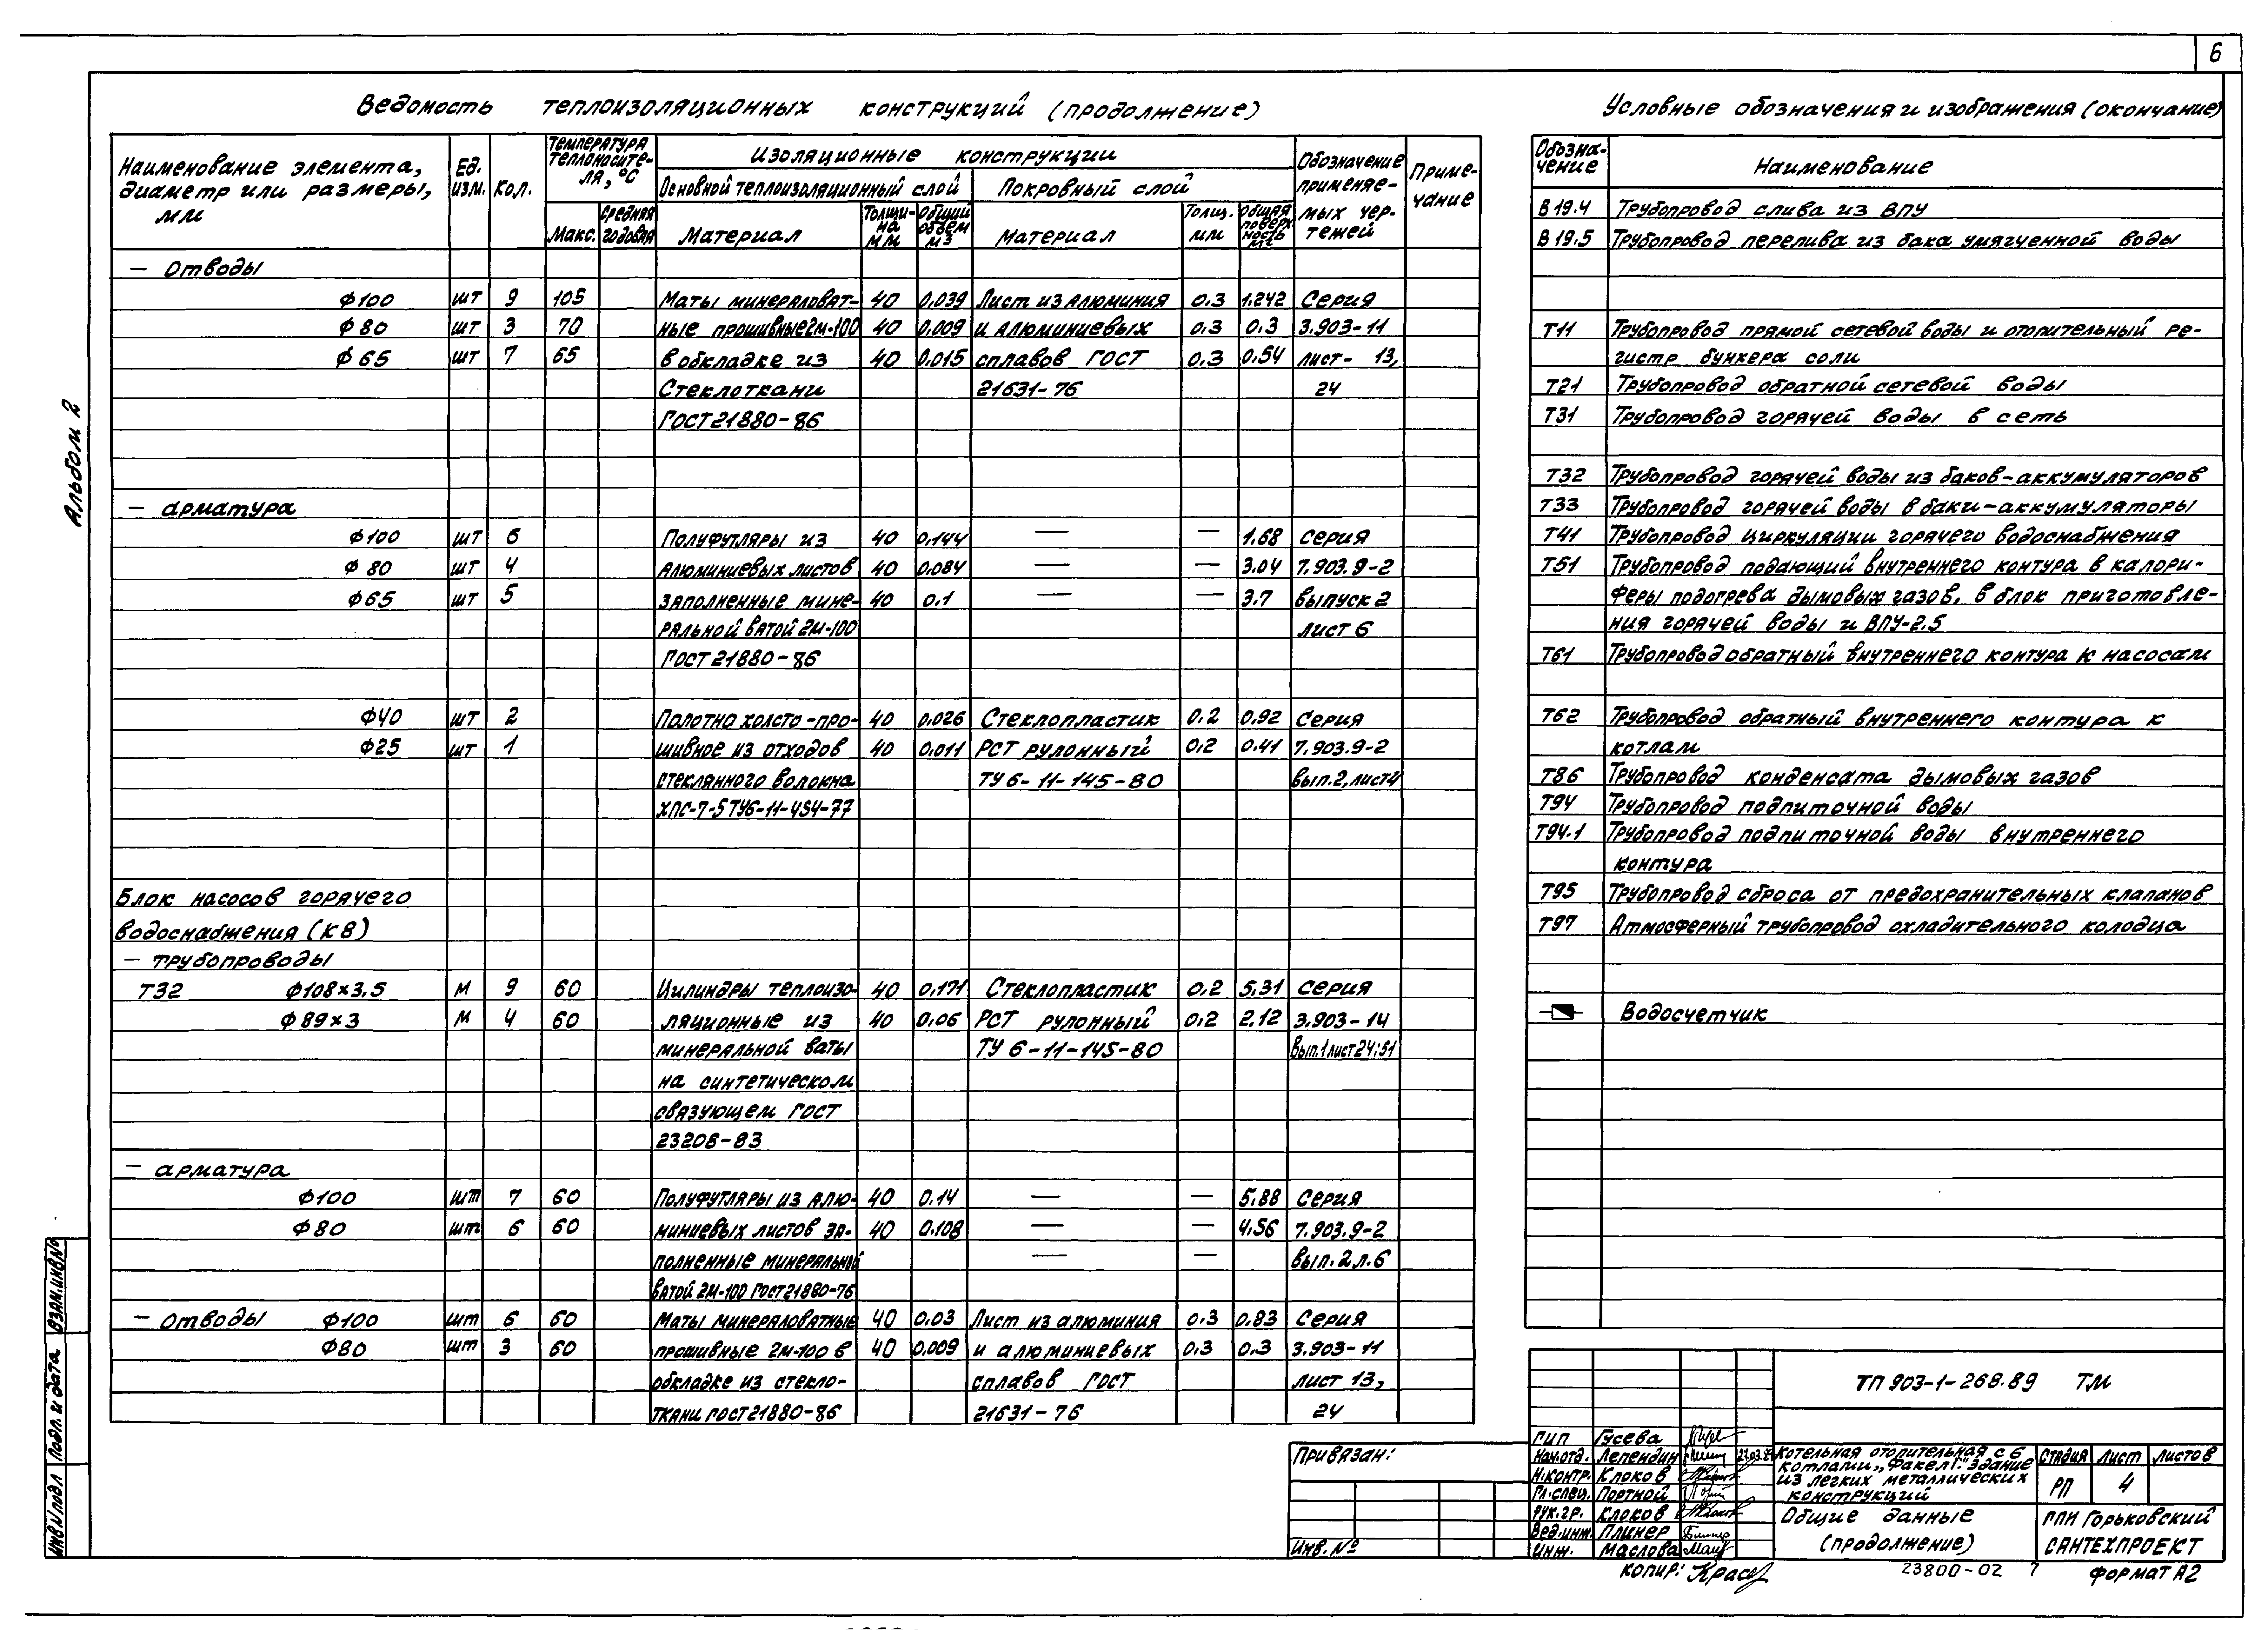 6
Альбом 2
Ведомость теплоизоляционных конструкций (продолжение)
Наименование элемента, диаметр или размеры, мм
Ед. изм.
Кол.
Температура теплоносите-ля, °С
Макс.
Средняя годовая
Изоляционные конструкции
Основной теплоизоляционный слой
Покровный слой
Материал
Толщи-на мм
Общий объем м3
Материал
Толщ. мм
Общая поверх-ность м2
Обозначение применяе-мых чер-тежей
Приме-чание
— Отводы
ф100 шт 9 105 Маты минераловат- 40 0,039 Лист из алюминия 0.3 1.242 Серия
ф 80 шт 3 70 ные прошивные 2м-100 40 0,009 и алюминиевых 0.3 0.3 3.903-11
ф 65 шт 7 65 в обкладке из 40 0,015 сплавов ГОСТ 0.3 0.54 лист- 13,
Стеклоткани 21631-76 24
ГОСТ 21880-86
— арматура
ф100 шт 6 Полуфутляры из 40 0.144 — — 1.68 серия
ф 80 шт 4 алюминиевых листов 40 0,084 — — 3.04 7.903.9-2
ф65 шт 5 заполненные мине- 40 0.1 — — 3.7 выпуск 2
ральной ватой 2М-100 лист 6
ГОСТ 21880-86
ф40 шт 2 Полотно холсто-про- 40 0,026 Стеклопластик 0.2 0,92 Серия
ф25 шт 1 шивное из отходов 40 0.011 РСТ рулонный 0.2 0.41 7.903.9-2
стеклянного волокна ТУ 6-11-145-80 вып.2, лист 4
ХПС-7-5 ТУ6-11-454-77
Блок насосов горячего
водоснабжения (К8)
— трубопроводы
Т32 ф108×3.5 м 9 60 Цилиндры теплоизо- 40 0.171 Стеклопластик 0.2 5.31 серия
ф 89×3 м 4 60 ляционные из 40 0.06 РСТ рулонный 0.2 2.12 3.903-14
минеральной ваты ТУ 6-11-145-80 Вып.1 лист 24;51
на синтетическом
связующем ГОСТ
23208-83
— арматура
ф100 шт 7 60 Полуфутляры из алю- 40 0.14 — — 5.88 серия
ф80 шт 6 60 миниевых листов за- 40 0.108 — — 4.56 7.903.9-2
полненные минеральной — — Вып.2 л.6
ватой 2М-100 ГОСТ 21880-76
— Отводы ф100 шт 6 60 Маты минераловатные 40 0.03 Лист из алюминия 0.3 0.83 Серия
ф80 шт 3 60 прошивные 2М-100 в 40 0,009 и алюминиевых 0.3 0.3 3.903-11
обкладке из стекло- сплавов ГОСТ лист 13,
ткани ГОСТ 21880-86 21631-76 24
Условные обозначения и изображения (окончание)
Обозна-чение Наименование
В 19.4 Трубопровод слива из ВПУ
В 19.5 Трубопровод перелива из бака умягченной воды
Т11 Трубопровод прямой сетевой воды и отопительный ре-
гистр бункера соли
Т21 Трубопровод обратной сетевой воды
Т31 Трубопровод горячей воды в сеть
Т32 Трубопровод горячей воды из баков-аккумуляторов
Т33 Трубопровод горячей воды в баки-аккумуляторы
Т41 Трубопровод циркуляции горячего водоснабжения
Т51 Трубопровод подающий внутреннего контура в калори-
феры подогрева дымовых газов, в блок приготовле-
ния горячей воды и ВПУ-2.5
Т61 Трубопровод обратный внутреннего контура к насосам
Т62 Трубопровод обратный внутреннего контура к
котлам
Т86 Трубопровод конденсата дымовых газов
Т94 Трубопровод подпиточной воды
Т94.1 Трубопровод подпиточной воды внутреннего
контура
Т95 Трубопровод сброса от предохранительных клапанов
Т97 Атмосферный трубопровод охладительного колодца
Водосчетчик
ТП 903-1-268.89 ТМ
ГИП Гусева
Нач.отд. Лепендин
Н.контр. Клоков
Гл.спец. Портной
Рук.гр. Клоков
Вед.инж. Плинер
Инж. Маслова
Котельная отопительная с 6
котлами „Факел Г". Здание
из легких металлических
конструкций
Стадия Лист Листов
РП 4
Общие данные
(продолжение)
ГПИ Горьковский
САНТЕХПРОЕКТ
Привязан:
Инв. №
Копир:
23800-02 7
формат А2
Взам.инв№
Подп. и дата
Инв№подл